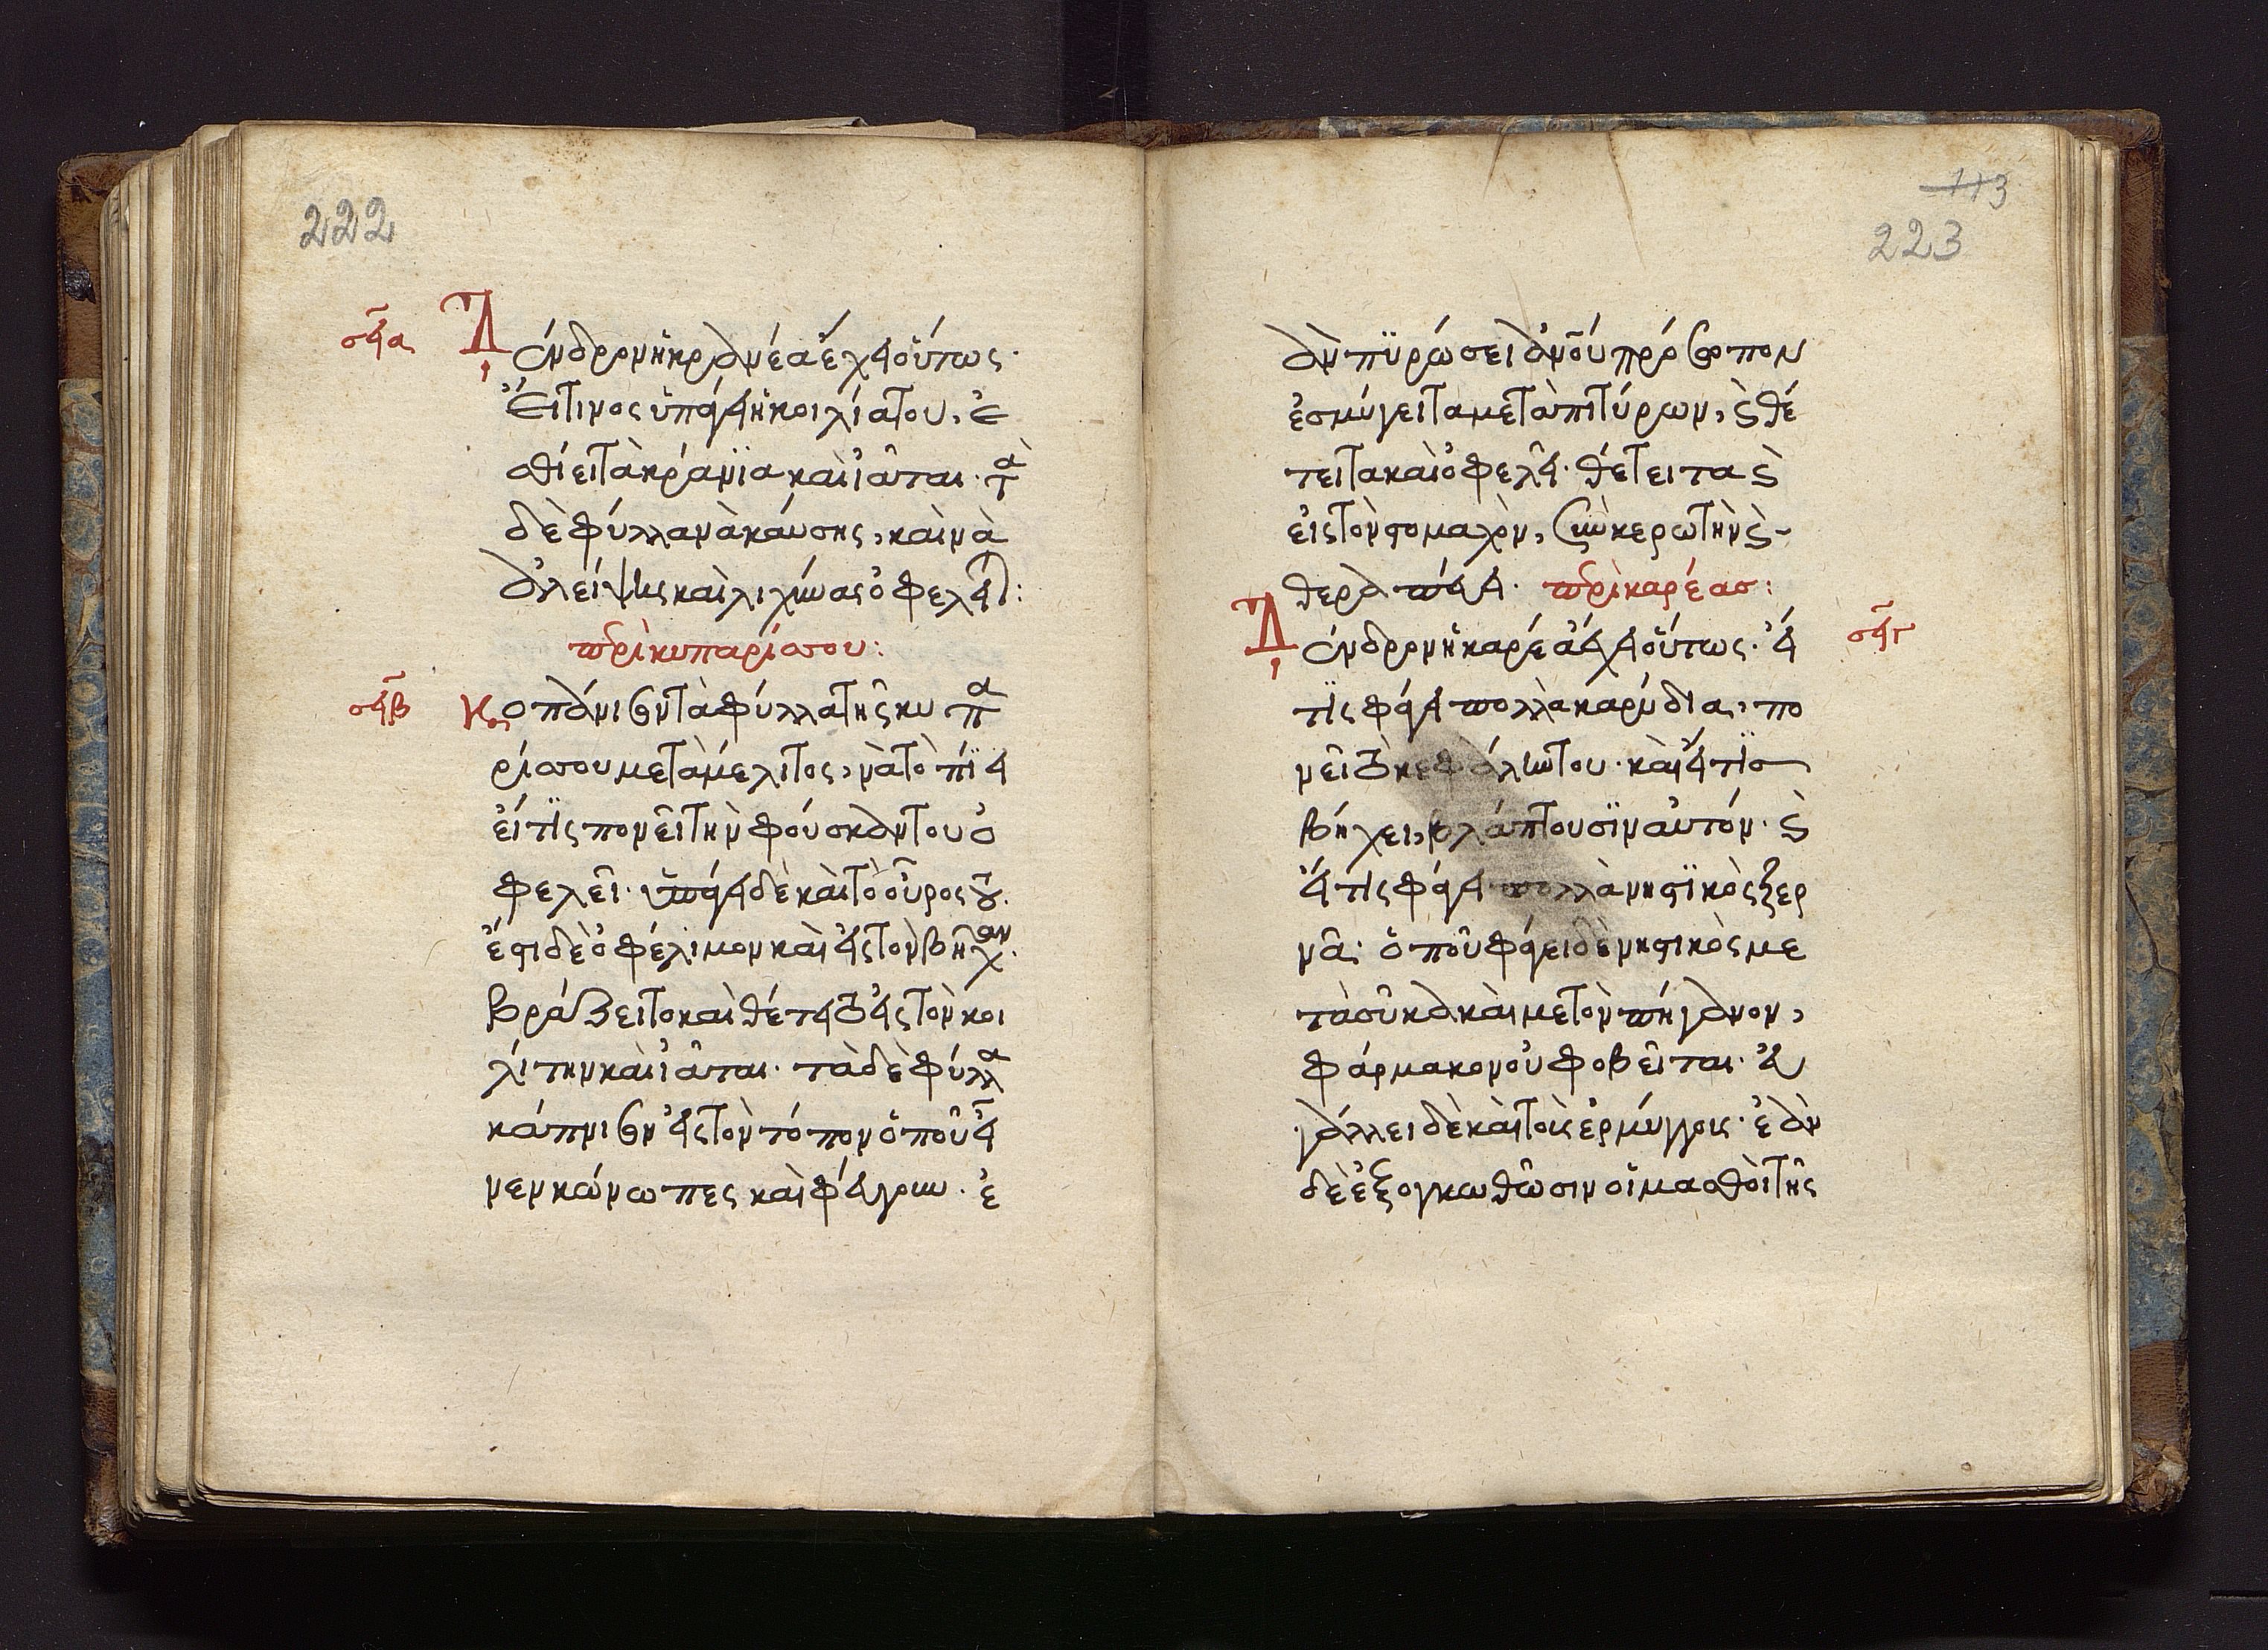 222
σξα Δένδρον ἡ κρανέα ἔχει οὕτως·
Εἴτινος ὑπάγει ἡ κοιλία του, ἐ
σθίει τὰ κράνϊα καὶ ἰᾶται· τὰ
δὲ φύλλα νὰ καύσης, καὶ νὰ
ἀλείψης καὶ λιχήνας ὀφελεῖ:
περὶ κυπαρίσσου:
σξβ Κοπάνισον τὰ φύλλα τῆς κυπα
ρίσσου μετὰ μέλιτος, νὰ τὸ πίϊει
εἴ τϊς πονεῖ τὴν φούσκαν του ὀ
φελεῖ· ὑπάγει δὲ καὶ τὸ οὖρος του.
ἔστι δὲ ὀφέλιμον καὶ εἰς τὸν βῆχαν.
βράζει το καὶ θέτει το εἰς τὸν κοι
λίτην καὶ ἰᾶται· τὰ δὲ φύλλα
κάπνισον εἰς τὸν τόπον ὁποῦ εἶ
νεν κώνωπες καὶ φεύγουν· ἐ
113
223
ἂν πϋρώσει ἀνοῦ πρόσωπον
ἐσμύγει τα μετὰ πιτύρων, καὶ θέ
τει τα καὶ ὀφελεῖ· θέτει τα καὶ
εἰς τὸν στομαχὸν, σὺν κερωτὴν καὶ
θεραπεύει· περὶ καρέας:
Δένδρον ἡ καρέα ἔχει οὕτως· εἴ σξγ
τϊς φάγει πολλὰ καρύδια, πο
νεῖ τὸ κεφάλιν του· καὶ εἴ τϊς
βήχει, βλάπτουσϊν αὐτόν· καὶ
εἴ τϊς φάγει πολλὰ νηστϊκὸς ξερ
νᾶ· ὁποῦ φάγει δὲ νηστικὸς με
τὰ σῦκα καὶ μετὸν πήγανον,
φάρμακον οὐ φοβεῖται· εὐ
γάλλει δὲ καὶ τοὺς ἑρμύγγους· ἐὰν
δὲ ἐξογκωθῶσιν οἱ μασθοὶ τῆς